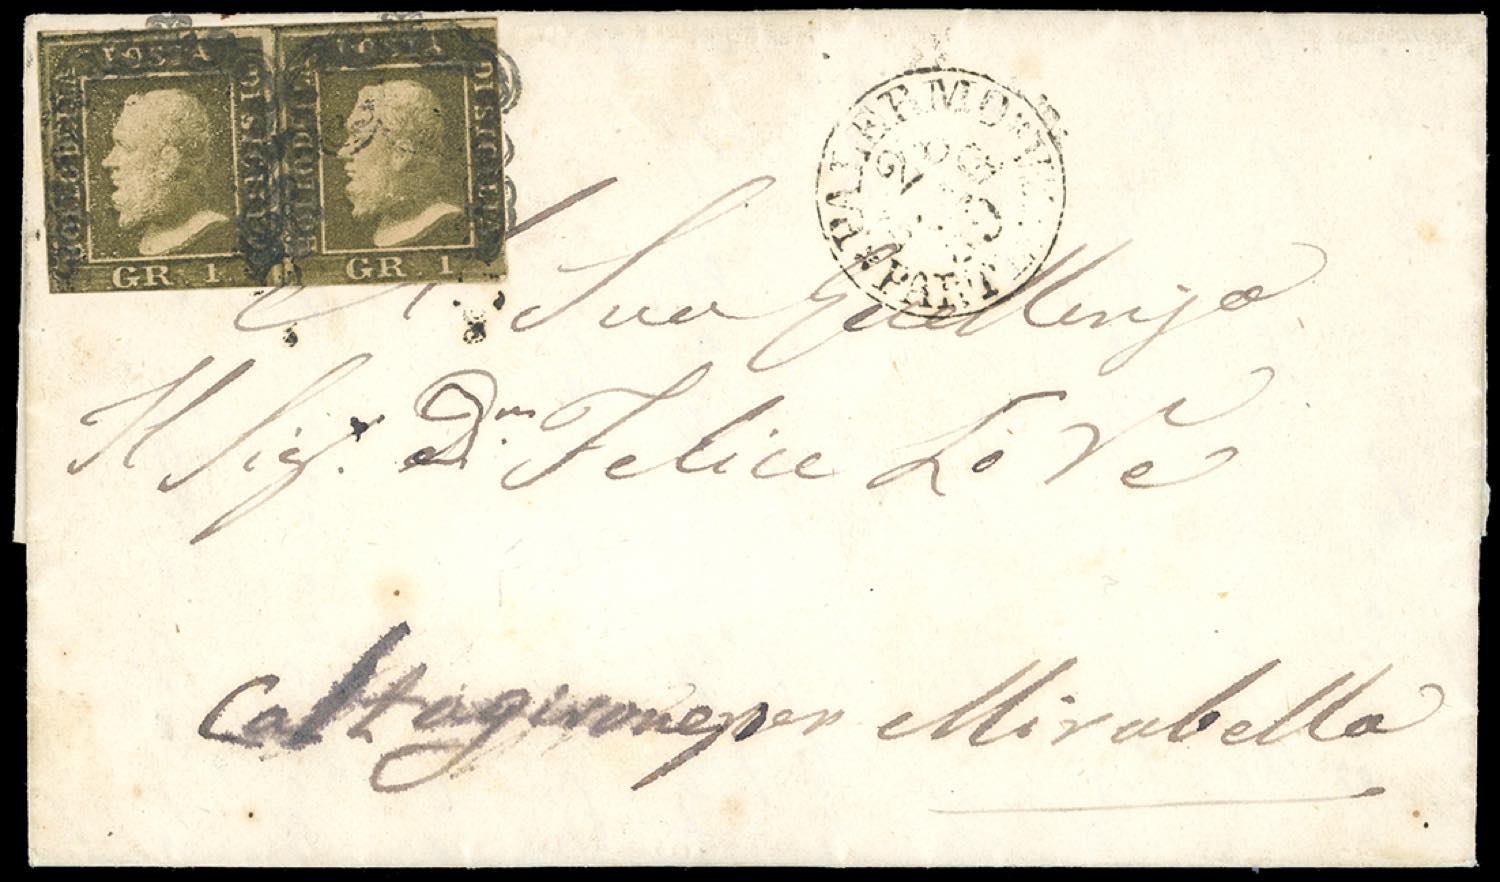 POSTA POSTA
BOLLO DELLA DI SICILIA BOLLO DELLA DI SICILIA
GR. 1 GR. 1
PALERMO
PART
A Sua Eccellenza
Il Sig. Dn. Felice Lo Ve
Caltagirone per Mirabella